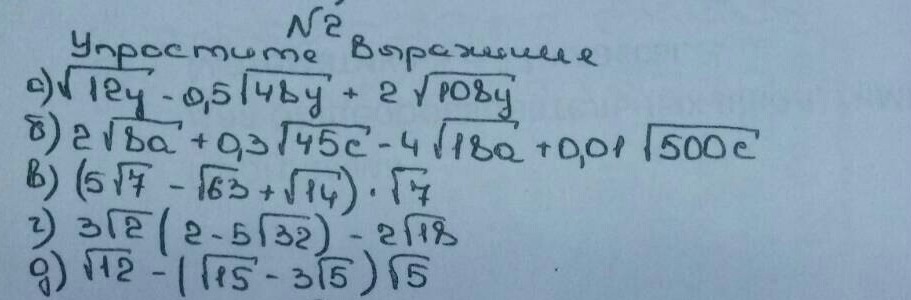 N2
Упростите выражение
а) √12y - 0,5√48y + 2√108y
б) 2√8a + 0,3√45c - 4√18a + 0,01√500c
в) (5√7 - √63 + √14) · √7
г) 3√2 (2 - 5√32) - 2√18
д) √12 - (√15 - 3√5)√5